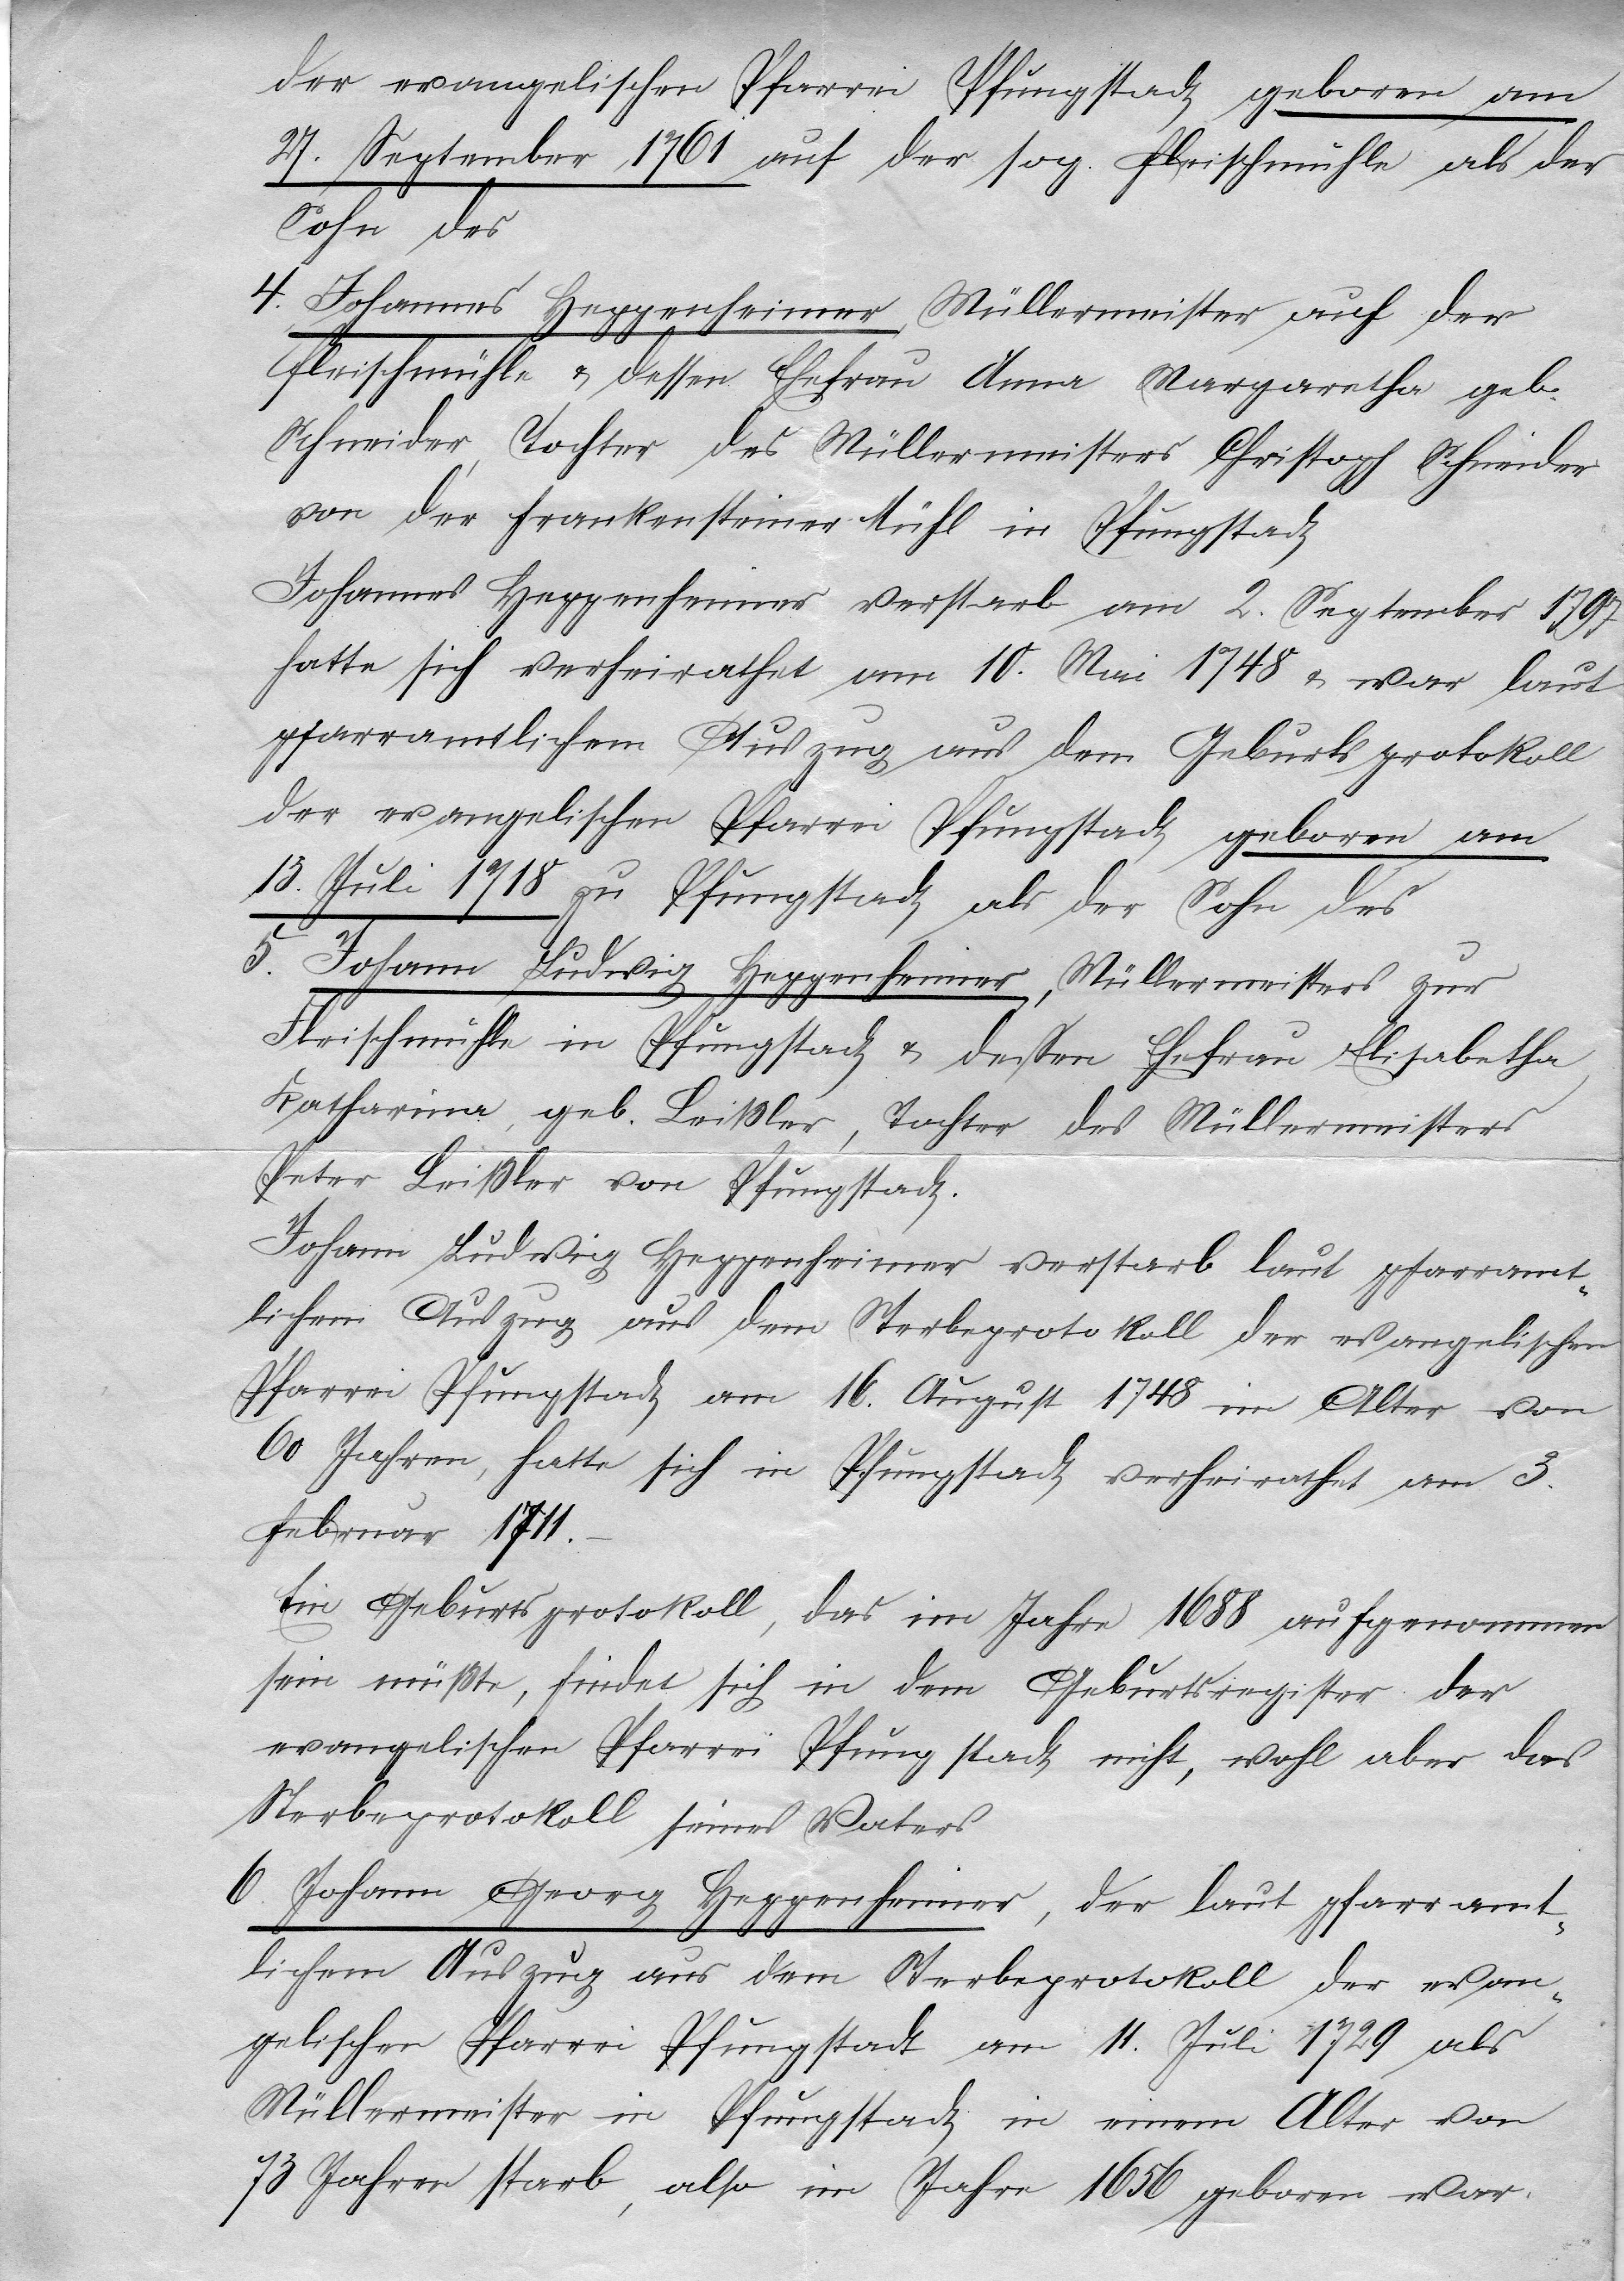 der evangelischen Pfarrei Pfungstadt geboren am
27. September 1761 auf der sog. Fleischmühle als der
Sohn des
4. Johannes Heppenheimer, Müllermeister auf der
Fleischmühle & dessen Ehefrau Anna Margaretha geb.
Schneider, Tochter des Müllermeisters Christoph Schneider
von der Frankensteiner Mühl in Pfungstadt
Johannes Heppenheimer verstarb am 2. September 1797
hatte sich verheirathet am 10. Mai 1748 & war laut
pfarramtlichem Auszug aus dem Geburtsprotokoll
der evangelischen Pfarrei Pfungstadt geboren am
13. Juli 1718 zu Pfungstadt als der Sohn des
5. Johann Ludwig Heppenheimer, Müllermeisters zur
Fleischmühle in Pfungstadt & dessen Ehefrau Elisabetha
Katharina, geb. Leißler, Tochter des Müllermeisters
Peter Leißler von Pfungstadt.
Johann Ludwig Heppenheimer verstarb laut pfarramt-
lichem Auszug aus dem Sterbeprotokoll der evangelischen
Pfarrei Pfungstadt am 16. August 1748 im Alter von
60 Jahren, hatte sich in Pfungstadt verheirathet am 3.
Februar 1711. –
Ein Geburtsprotokoll, das im Jahre 1688 aufgenommen
sein müßte, findet sich in dem Geburtsregister der
evangelischen Pfarrei Pfungstadt nicht, wohl aber das
Sterbeprotokoll seines Vaters
6. Johann Georg Heppenheimer, der laut pfarramt-
lichem Auszug aus dem Sterbeprotokoll der evan-
gelischen Pfarrei Pfungstadt am 11. Juli 1729 als
Müllermeister in Pfungstadt in einem Alter von
73 Jahren starb, also im Jahre 1656 geboren war.